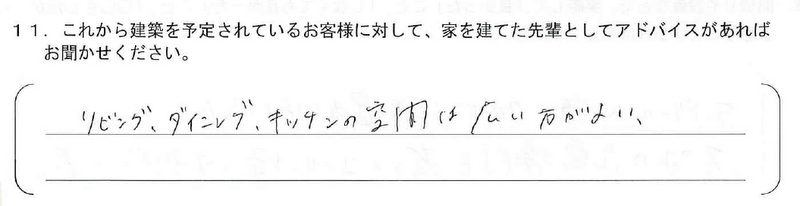 11．これから建築を予定されているお客様に対して、家を建てた先輩としてアドバイスがあれば
お聞かせください。
リビング、ダイニング、キッチンの空間は広い方がよい、